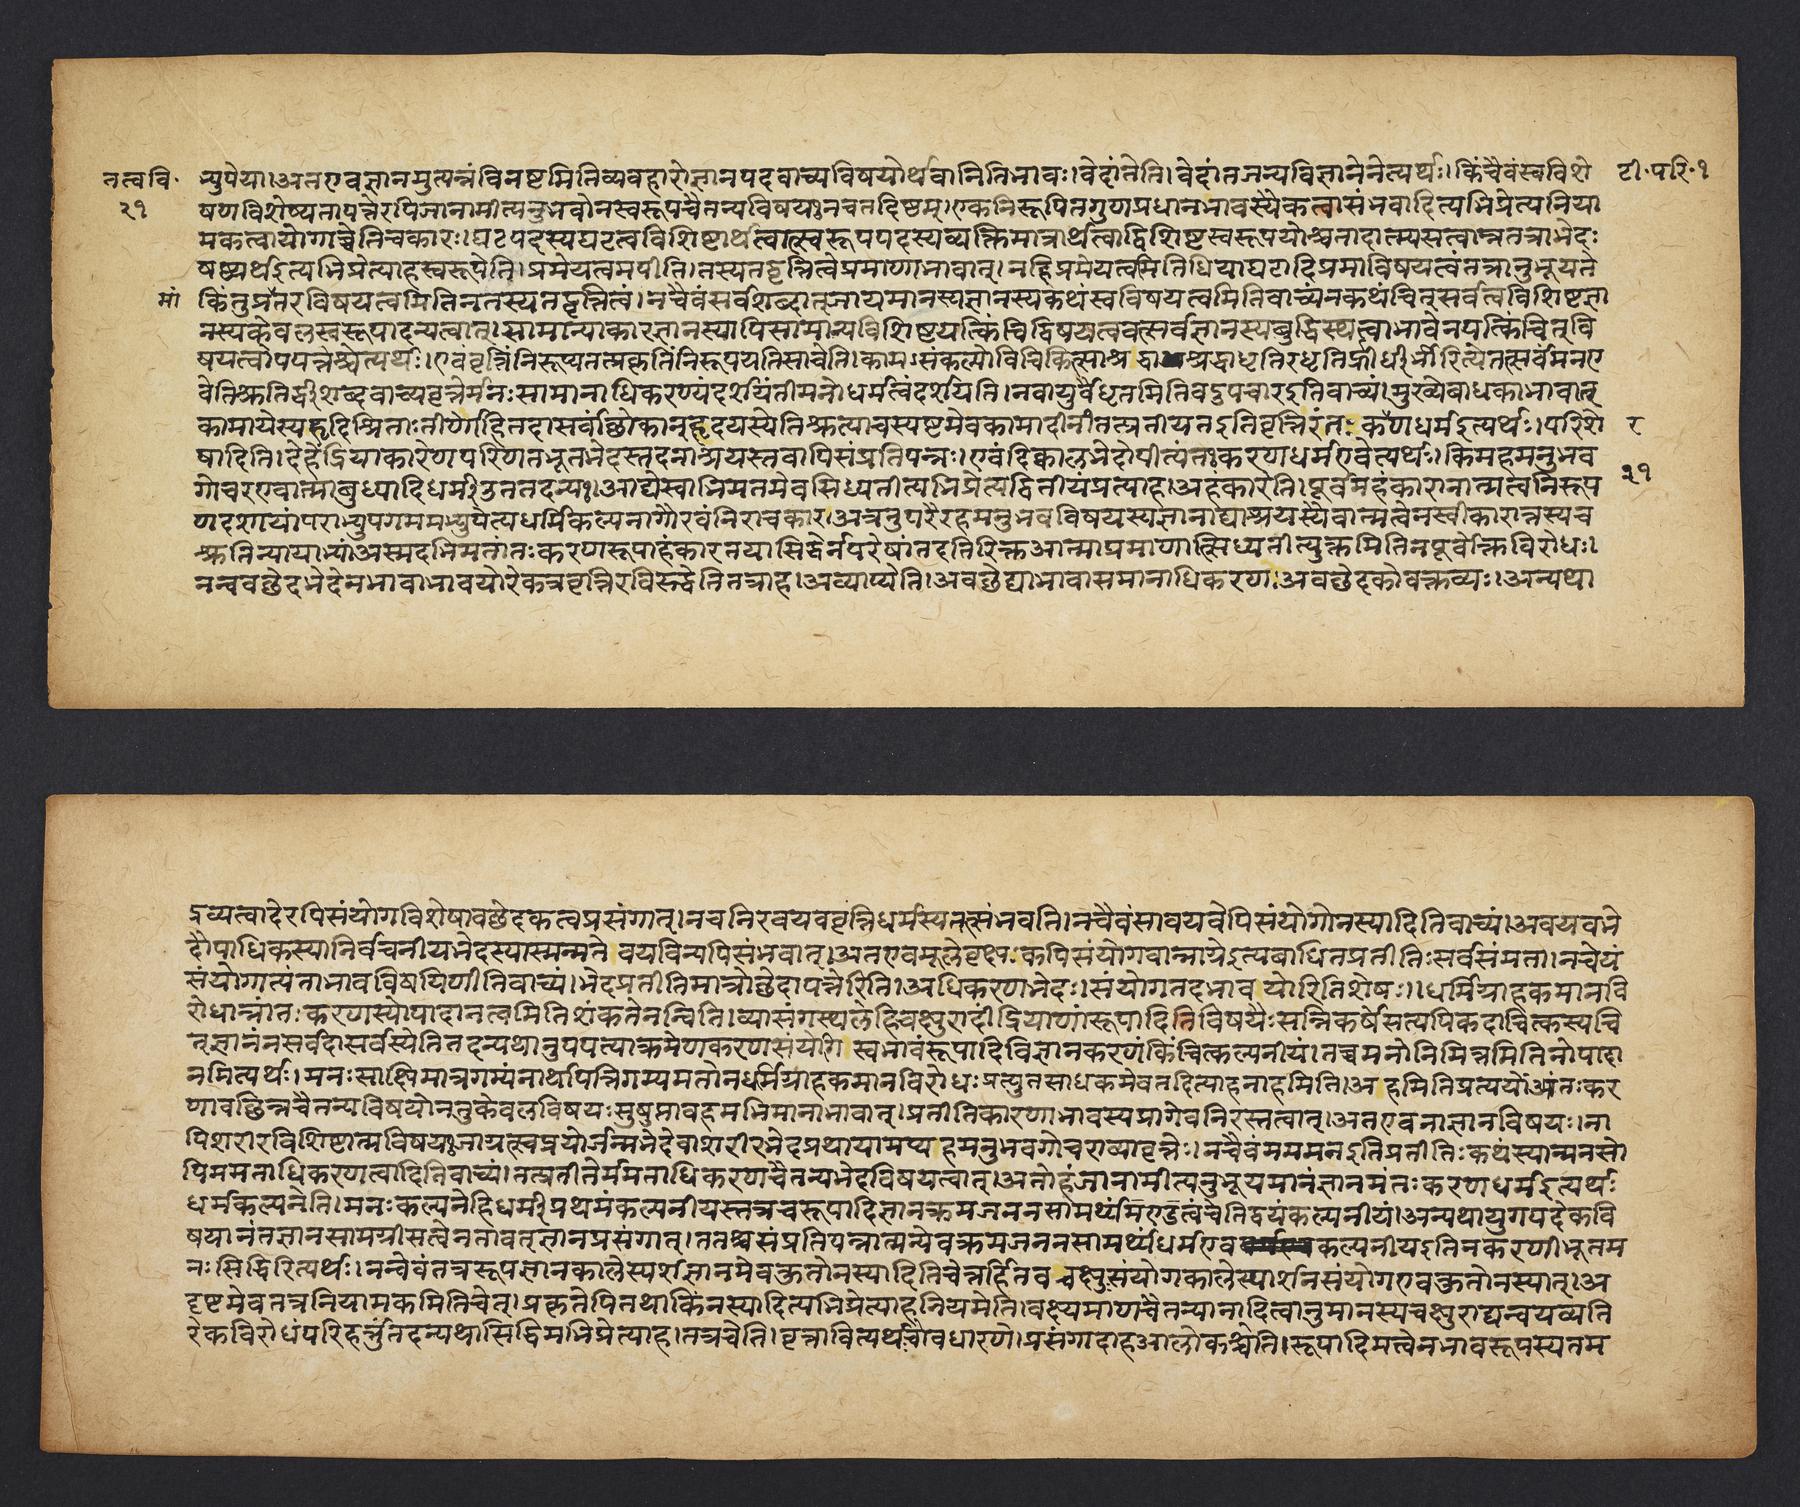 तत्ववि॰
२१
टी॰परि॰१
न्युपेया।अतएवज्ञानमुत्पन्नंविनष्टमितिव्यवहारोज्ञानपदवाच्यविषयोर्थवानितिभावः।वेदांतेति।वेदांतजन्यविज्ञानेनेत्यर्थः।किंचैवंस्वविशे
षणविशेष्यतापत्तेरपिजानामीत्यनुभवोनस्वरूपचैतन्यविषयःनचतदिष्टम्।एकनिरूपितगुणप्रधानभावस्यैकत्वासंभवादित्यभिप्रेत्यनिया
मकत्वायोगाच्चेतिचकारः।घटपदस्यघटत्वविशिष्टार्थत्वात्स्वरूपपदस्यव्यक्तिमात्रार्थत्वाद्विशिष्टस्वरूपयोश्चतादात्म्यसत्वान्नतत्राभेदः
षष्ठ्यर्थइत्यभिप्रेत्याहस्वरूपेति।प्रमेयत्वमपीति।तस्यतद्वृत्तित्वेप्रमाणाभावात्।नहिप्रमेयत्वमितिधियाघटादिप्रमाविषयत्वंतत्रानुभूयते
मां
किंतुप्रांतरविषयत्वमितिनतस्यतद्वृत्तित्वं।नचैवंसर्वशब्दात्जायमानस्यज्ञानस्यकथंस्वविषयत्वमितिवाच्यंनकथंचित्सर्वत्वविशिष्टज्ञा
नस्यकेवलस्वरूपादन्यत्वात्।सामान्याकारज्ञानस्यापिसामान्यविशिष्टयत्किंचिद्विषयत्ववत्सर्वज्ञानस्यबुद्धिस्थत्वाभावेनयत्किंचित्वि
षयत्वोपपत्तेश्चेत्यर्थः।एवंवृत्तिंनिरूप्यतत्प्रकृतिंनिरूपयतिसाचेति।कामःसंकल्पोविचिकित्साश्रद्धाअश्रद्धाधृतिरधृतिर्ह्रीर्धीर्भीरित्येतत्सर्वंमनए
वेतिश्रुतिर्द्धीशब्दवाच्यवृत्तेर्मनःसामानाधिकरण्यंदर्शयंतीमनोधर्मत्वंदर्शयति।नवायुर्वैधृतमितिवदुपचारइतिवाच्यं।मुख्येबाधकाभावात्
कामायेस्यहृदिश्रिताःतीर्णोहितदासर्वांछोकान्हृदयस्येतिश्रुत्याचस्पष्टमेवकामादीनांतत्प्रतीयतइतिवृत्तिरंतःकणधर्मइत्यर्थः।परिशे
र
षादिति।देहेंद्रियाकारेणपरिणतभूतभेदस्तुदनाश्रयस्तवापिसंप्रतिपन्नः।एवंदिक्कालभेदोपीत्यंतःकरणधर्मएवेत्यर्थः।किमहमनुभव
गोचरएवात्माबुध्यादिधर्मीउततदन्यः।आद्येस्वाभिमतमेवसिध्यतीत्यभिप्रेत्यद्वितीयंप्रत्याह।अहंकारेति।पूर्वमहंकारानात्मत्वनिरूप
२१
णदशायांपराभ्युपगममभ्युपेत्यधर्मिकल्पनागौरवंनिराचकार।अत्रतुपरैरहमनुभवविषयस्यज्ञानाद्याश्रयस्यैवात्मत्वेनस्वीकारात्तस्यच
श्रुतिन्यायाभ्यांअस्मदभिमतांतःकरणरूपाहंकारतयासिद्धेर्नपरेषांतदतिरिक्तआत्माप्रमाणात्सिध्यतीत्युक्तमितिनपूर्वोक्तिविरोधः।
नन्ववछेदभेदेनभावाभावयोरेकत्रवृत्तिरविरुद्धेतितत्राह।अव्याप्येति।अवछेद्याभावासमानाधिकरणःअवछेदकोवक्तव्यः।अन्यथा
द्रव्यत्वादेरपिसंयोगविशेषावछेदकत्वप्रसंगात्।नचनिरवयववृत्तिधर्मस्यतत्संभवति।नचैवंसावयवेपिसंयोगोनस्यादितिवाच्यं।अवयवभे
दौपाधिकस्यानिर्वचनीयभेदस्यास्मन्मतेवयविन्यपिसंभवात्।अतएवमूलेवृक्षःकपिसंयोगवान्नाग्रेइत्यबाधितप्रतीतिःसर्वसंमता।नचेयं
संयोगात्यंताभावविषयिणीतिवाच्यं।भेदप्रतीतिमात्रोछेदापत्तेरिति।अधिकरणभेदः।संयोगतदभावयोरितिशेषः।।धर्मिग्राहकमानवि
रोधान्नांतःकरणस्योपादानत्वमितिशंकतेनन्विति।व्यासंगस्थलेहिचक्षुरादींद्रियाणांरूपादितिविषयैःसन्निकर्षेसत्यपिकदाचित्कस्यचि
त्ज्ञानंनसर्वदासर्वस्येतितदन्यथानुपपत्याक्रमेणकरणसंयोगिस्वभावंरूपादिविज्ञानकरणंकिंचित्कल्पनीयं।तच्चमनोनिमित्तमितिनोपादा
नमित्यर्थः।मनःसाक्षिमात्रगम्यंनार्थापत्तिगम्यमतोनधर्मिग्राहकमानविरोधःप्रत्युतसाधकमेवतदित्याहनाहमिति।अहमितिप्रत्ययोंअंतःकर
णावछिन्नचैतन्यविषयोनतुकेवलविषयःसुषुप्तावहमभिमानाभावात्।प्रतीतिकारणाभावस्यप्रागेवनिरस्तत्वात्।अतएवनाज्ञानविषयः।ना
पिशरीरविशिष्टात्मविषयःजाग्रत्स्वप्नयोर्जन्मभेदेवाशरीरभेदप्रथायामप्यहमनुभवगोचराव्यावृत्तेः।नचैवंमममनइतिप्रतीतिःकथंस्यान्मनसो
पिममताधिकरणत्वादितिवाच्यं।तत्प्रतीतेर्ममताधिकरणचैतन्यभेदविषयत्वात्।अतोहंजानामीत्यनुभूयमानंज्ञानमंतःकरणधर्मइत्यर्थः
धर्मकल्पनेति।मनःकल्पनेहिधर्मीप्रथमंकल्पनीयस्तत्रचरूपादिज्ञानक्रमजननसामर्थ्यमिंद्रियत्वंचेतिद्वयंकल्पनीयं।अन्यथायुगपदेकवि
षयानंतज्ञानसामग्रीसत्वेनतावत्ज्ञानप्रसंगात्।ततश्चसंप्रतिपन्नात्मन्येवक्रमजननसामर्थ्यंधर्मएवकल्पनीयइतिनकरणीभूतम
नःसिद्धिरित्यर्थः।नन्वेवंतत्ररूपज्ञानकालेस्पर्शज्ञानमेवकुतोनस्यादितिचेत्तर्हितवचक्षुःसंयोगकालेस्पार्शनसंयोगएवकुतोनस्यात्।अ
दृष्टमेवतत्रनियामकमितिचेत्।प्रकृतेपितथाकिंनस्यादित्यभिप्रेत्याहनियमेति।वक्ष्यमाणचैतन्यानादित्वानुमानस्यचक्षुराद्यन्वयव्यति
रेकविरोधंपरिहर्त्तुंतदन्यथासिद्धिमभिप्रेत्याह।तत्रचेति।वृत्तावित्यर्थःचोवधारणे।प्रसंगादाहआलोकश्चेति।रूपादिमत्त्वेनभावरूपस्यतम